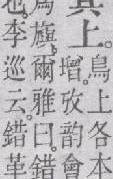 其上。
鳥上各本
增。攷韵會
爲旟。爾雅曰。錯
也。李巡云。錯革